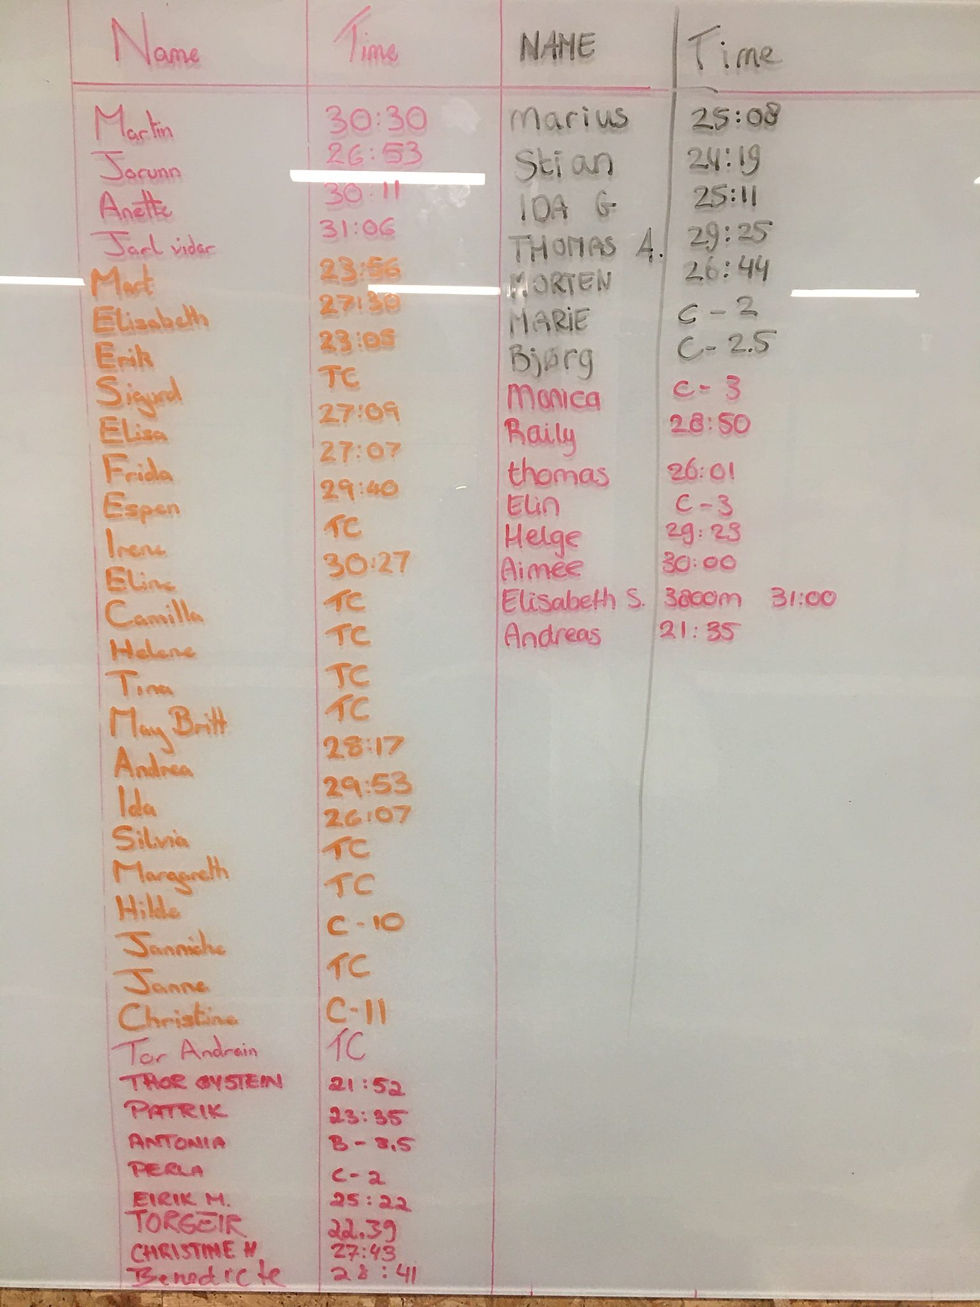 Name Time
Martin 30:30
Jorunn 26:53
Anette 30:11
Jarl vidar 31:06
Mart 23:56
Elisabeth 27:30
Erik 23:05
Sigurd TC
Elisa 27:09
Frida 27:07
Espen 29:40
Irene TC
Eline 30:27
Camilla TC
Helene TC
Tina TC
May Britt TC
Andrea 28:17
Ida 29:53
Silvia 26:07
Maragreth TC
Hilde TC
Janniche C-10
Janne TC
Christine C-11
Tor Andrein TC
THOR ØYSTEIN 21:52
PATRIK 23:35
ANTONIA B-8,5
PERLA C-2
EIRIK M. 25:22
TORGEIR 22.39
CHRISTINE H 27:43
Benedicte 28:41
NAME Time
Marius 25:08
Stian 24:19
IDA G 25:11
THOMAS A. 29:25
MORTEN 26:44
MARIE C-2
Bjørg C-2.5
Monica C-3
Raily 28:50
thomas 26:01
Elin C-3
Helge 29:23
Aimée 30:00
Elisabeth S. 3800m 31:00
Andreas 21:35